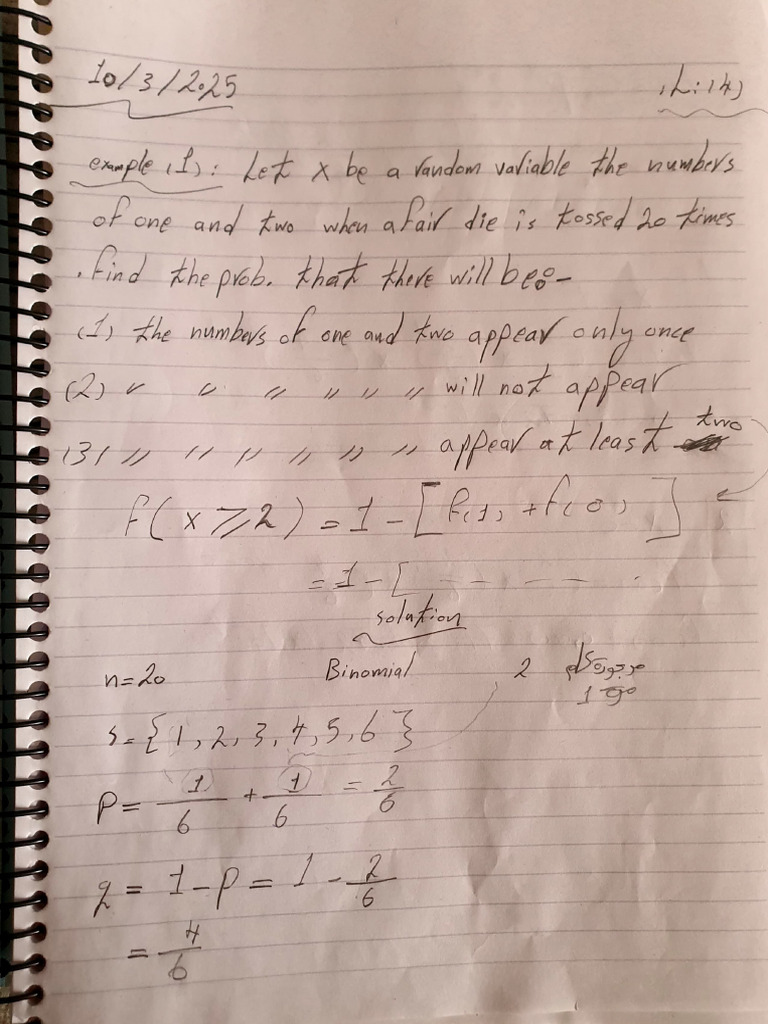 10/3/2025
,L:(4)
example (1): Let x be a random variable the numbers
of one and two when a fair die is tossed 20 times
. find the prob. that there will be:-
(1) the numbers of one and two appear only once
(2) " " " " " " " will not appear
(3) " " " " " " " appear at least two
f( x ⩾ 2 ) = 1 - [ f(1) + f(0) ]
= 1 - [ - - - - - .
solution
n=20 Binomial 2
1
S={1, 2, 3, 4, 5, 6 }
P= 1/6 + 1/6 = 2/6
q = 1 - p = 1 - 2/6
= 4/6